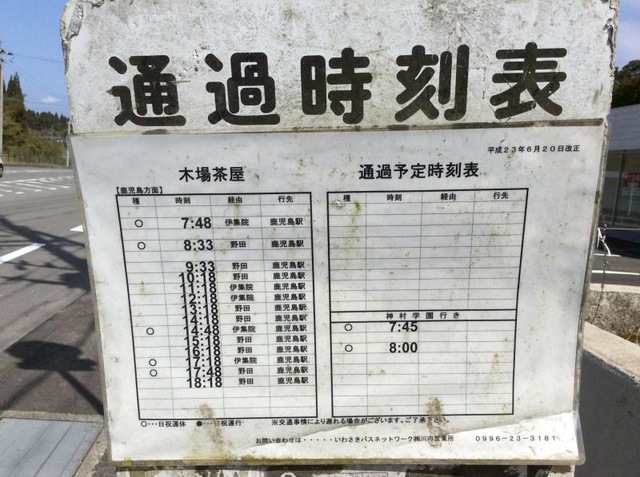 通過時刻表
平成23年6月20日改正
木場茶屋 通過予定時刻表
【鹿児島方面】
種 時刻 経由 行先 種 時刻 経由 行先
○ 7:48 伊集院 鹿児島駅
○ 8:33 野田 鹿児島駅
9:33 野田 鹿児島駅
10:18 野田 鹿児島駅
11:18 伊集院 鹿児島駅
12:18 伊集院 鹿児島駅
13:18 野田 鹿児島駅
14:18 野田 鹿児島駅
○ 14:48 伊集院 鹿児島駅
15:18 野田 鹿児島駅
16:18 野田 鹿児島駅
○ 17:18 伊集院 鹿児島駅
○ 17:48 野田 鹿児島駅
18:18 野田 鹿児島駅
神村学園行き
○ 7:45
○ 8:00
○・・・日祝運休 ●・・・日祝運行 ※交通事情により遅れる場合がございます。ご了承下さい。
お問い合わせは・・・・・いわさきバスネットワーク㈱川内営業所 0996-23-3181